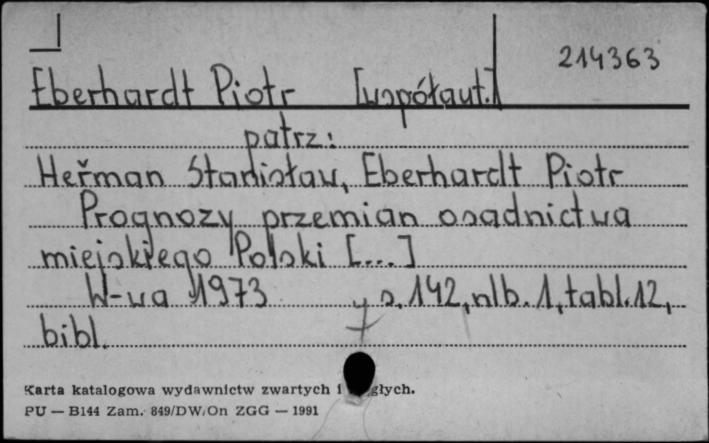 214363
Eberhardt Piotr [współaut.]
patrz:
Heřman Stanisław, Eberhardt Piotr
Prognozy przemian osadnictwa
miejskiego Polski [...]
W-wa 1973 s. 142, nlb. 1, tabl. 12,
bibl.
Karta katalogowa wydawnictw zwartych i
PU — B144 Zam. 849/DW/On ZGG — 1991